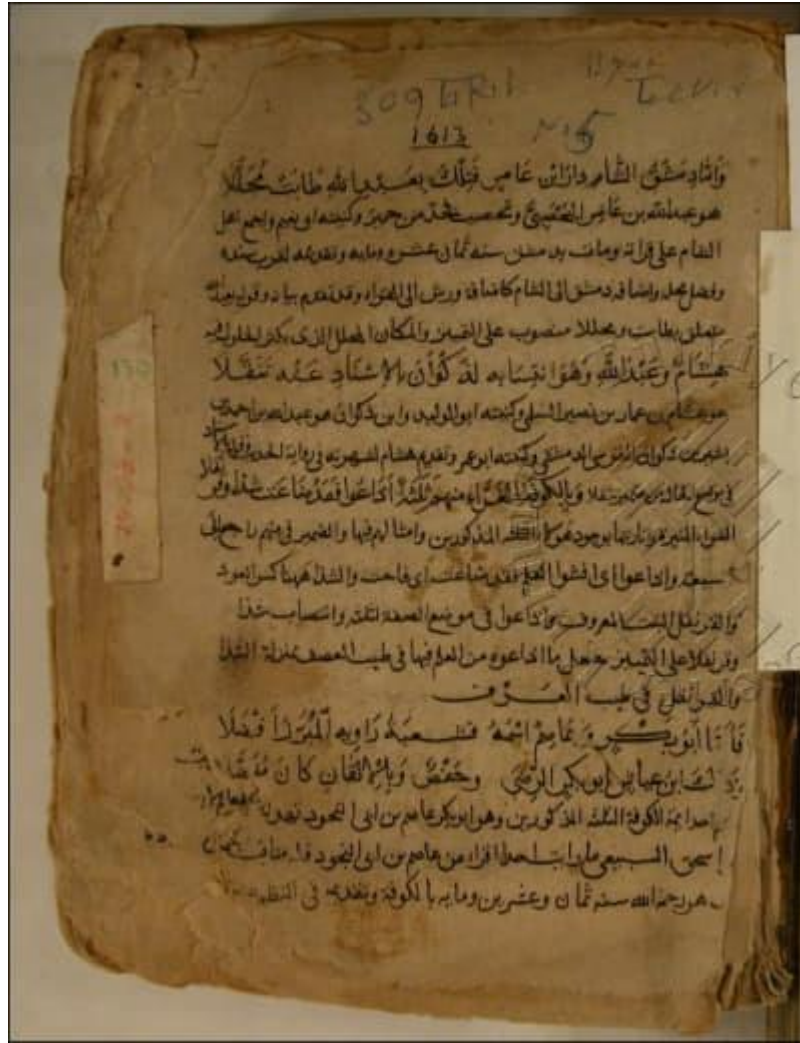 309
1613
وَأَمَّا دِمَشْقُ الشَّامِ دَارُ ابْنِ عَامِرٍ فَتِلْكَ بِعَبْدِ اللَّهِ طَابَتْ مُحَلَّلَا
هو عبدالله بن عامر اليحصبي ويحصب فخذ من حمير وكنيته ابو نعيم واجمع اهل
الشام على قراته ومات بدمشق سنه ثمان عشره ومايه وتقديمه لقرب سنده
وفضل محله واضافه دمشق الى الشام كاضافة ورش الى وقد تقدم بيانه وقوله بعبدالله
متعلق بطابت ومحللا منصوب على التمييز والمكان المحلل الذى يكثر الحلول فيه
هِشَامٌ وَعَبْدُ اللَّهِ وَهُوَ انْتِسَابُهُ لِذَكْوَانَ بِالْإِسْنَادِ عَنْهُ تَنَقَّلَا
هو هشام بن عمار بن نصير السلمى وكنيته ابو الوليد وابن ذكوان هو عبدالله بن احمد بن
بشير بن ذكوان القرشى الدمشقى وكنيته ابو عمر وتقديم هشام لشهرته فى رواية الحديث
وَبِالْكُوفَةِ الْغَرَّاءِ مِنْهُمْ ثَلَاثَةٌ أَذَاعُوا فَقَدْ ضَاعَتْ شَذًا
الغراء المنيرة وانارتها بوجود هولاء المذكورين وامثالهم فيها والضمير فى منهم راجع الى
سبعه واذاعوا اى افشوا العلم فقد ضاعت اى فاحت والشذا ههنا كسر العود
والقرنفل النبت المعروف واذاعوا فى موضع الصفة لثلثه وانتصاب شذا
وقرنفلا على التمييز جعل ما اذاعوه من العلم فيها فى طيب العرف بمنزلة الشذا
والقرنفل فى طيب العرف
فَأَمَّا أَبُو بَكْرٍ وَعَاصِمٌ اسْمُهُ فَشُعْبَةُ رَاوِيهِ الْمُبَرِّزُ أَفْضَلَا
وَذَاكَ ابن عياش ابو بكر الرضى وحفص وبالاتقان كان مفضلا
ايمة الكوفة الثلثه المذكورين وهو ابوبكر عاصم بن ابى النجود
اسحق السبيعى ما رايت احدا اقرا من عاصم بن ابى النجود
رحمه الله سنه ثمان وعشرين ومايه بالكوفة وتقديمه فى النظم